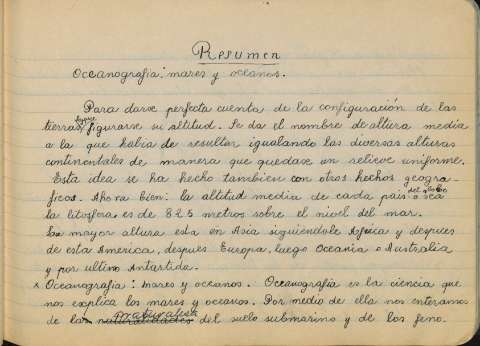 Resumen
Oceanografia: mares y oceanos.
Para darse perfecta cuenta de la configuración de las
tierras, figurarse su altitud. Se da el nombre de altura media
a la que habia de resultar igualando las diversas alturas
continentales de manera que quedase un relieve uniforme.
Esta idea se ha hecho tambien con otros hechos geogra-
ficos. Ahora bien: la altitud media de cada pais o sea
la litosfera es de 825 metros sobre el nivel del mar.
La mayor altura esta en Asia siguiendole Africa y despues
de esta America, despues Europa, luego Oceania o Australia
y por ultimo Antartida.
x Oceanografia: mares y oceanos. Oceanografia es la ciencia que
nos explica los mares y oceanos. Por medio de ella nos enteramos
de las naturalidades del suelo submarino y de los feno-